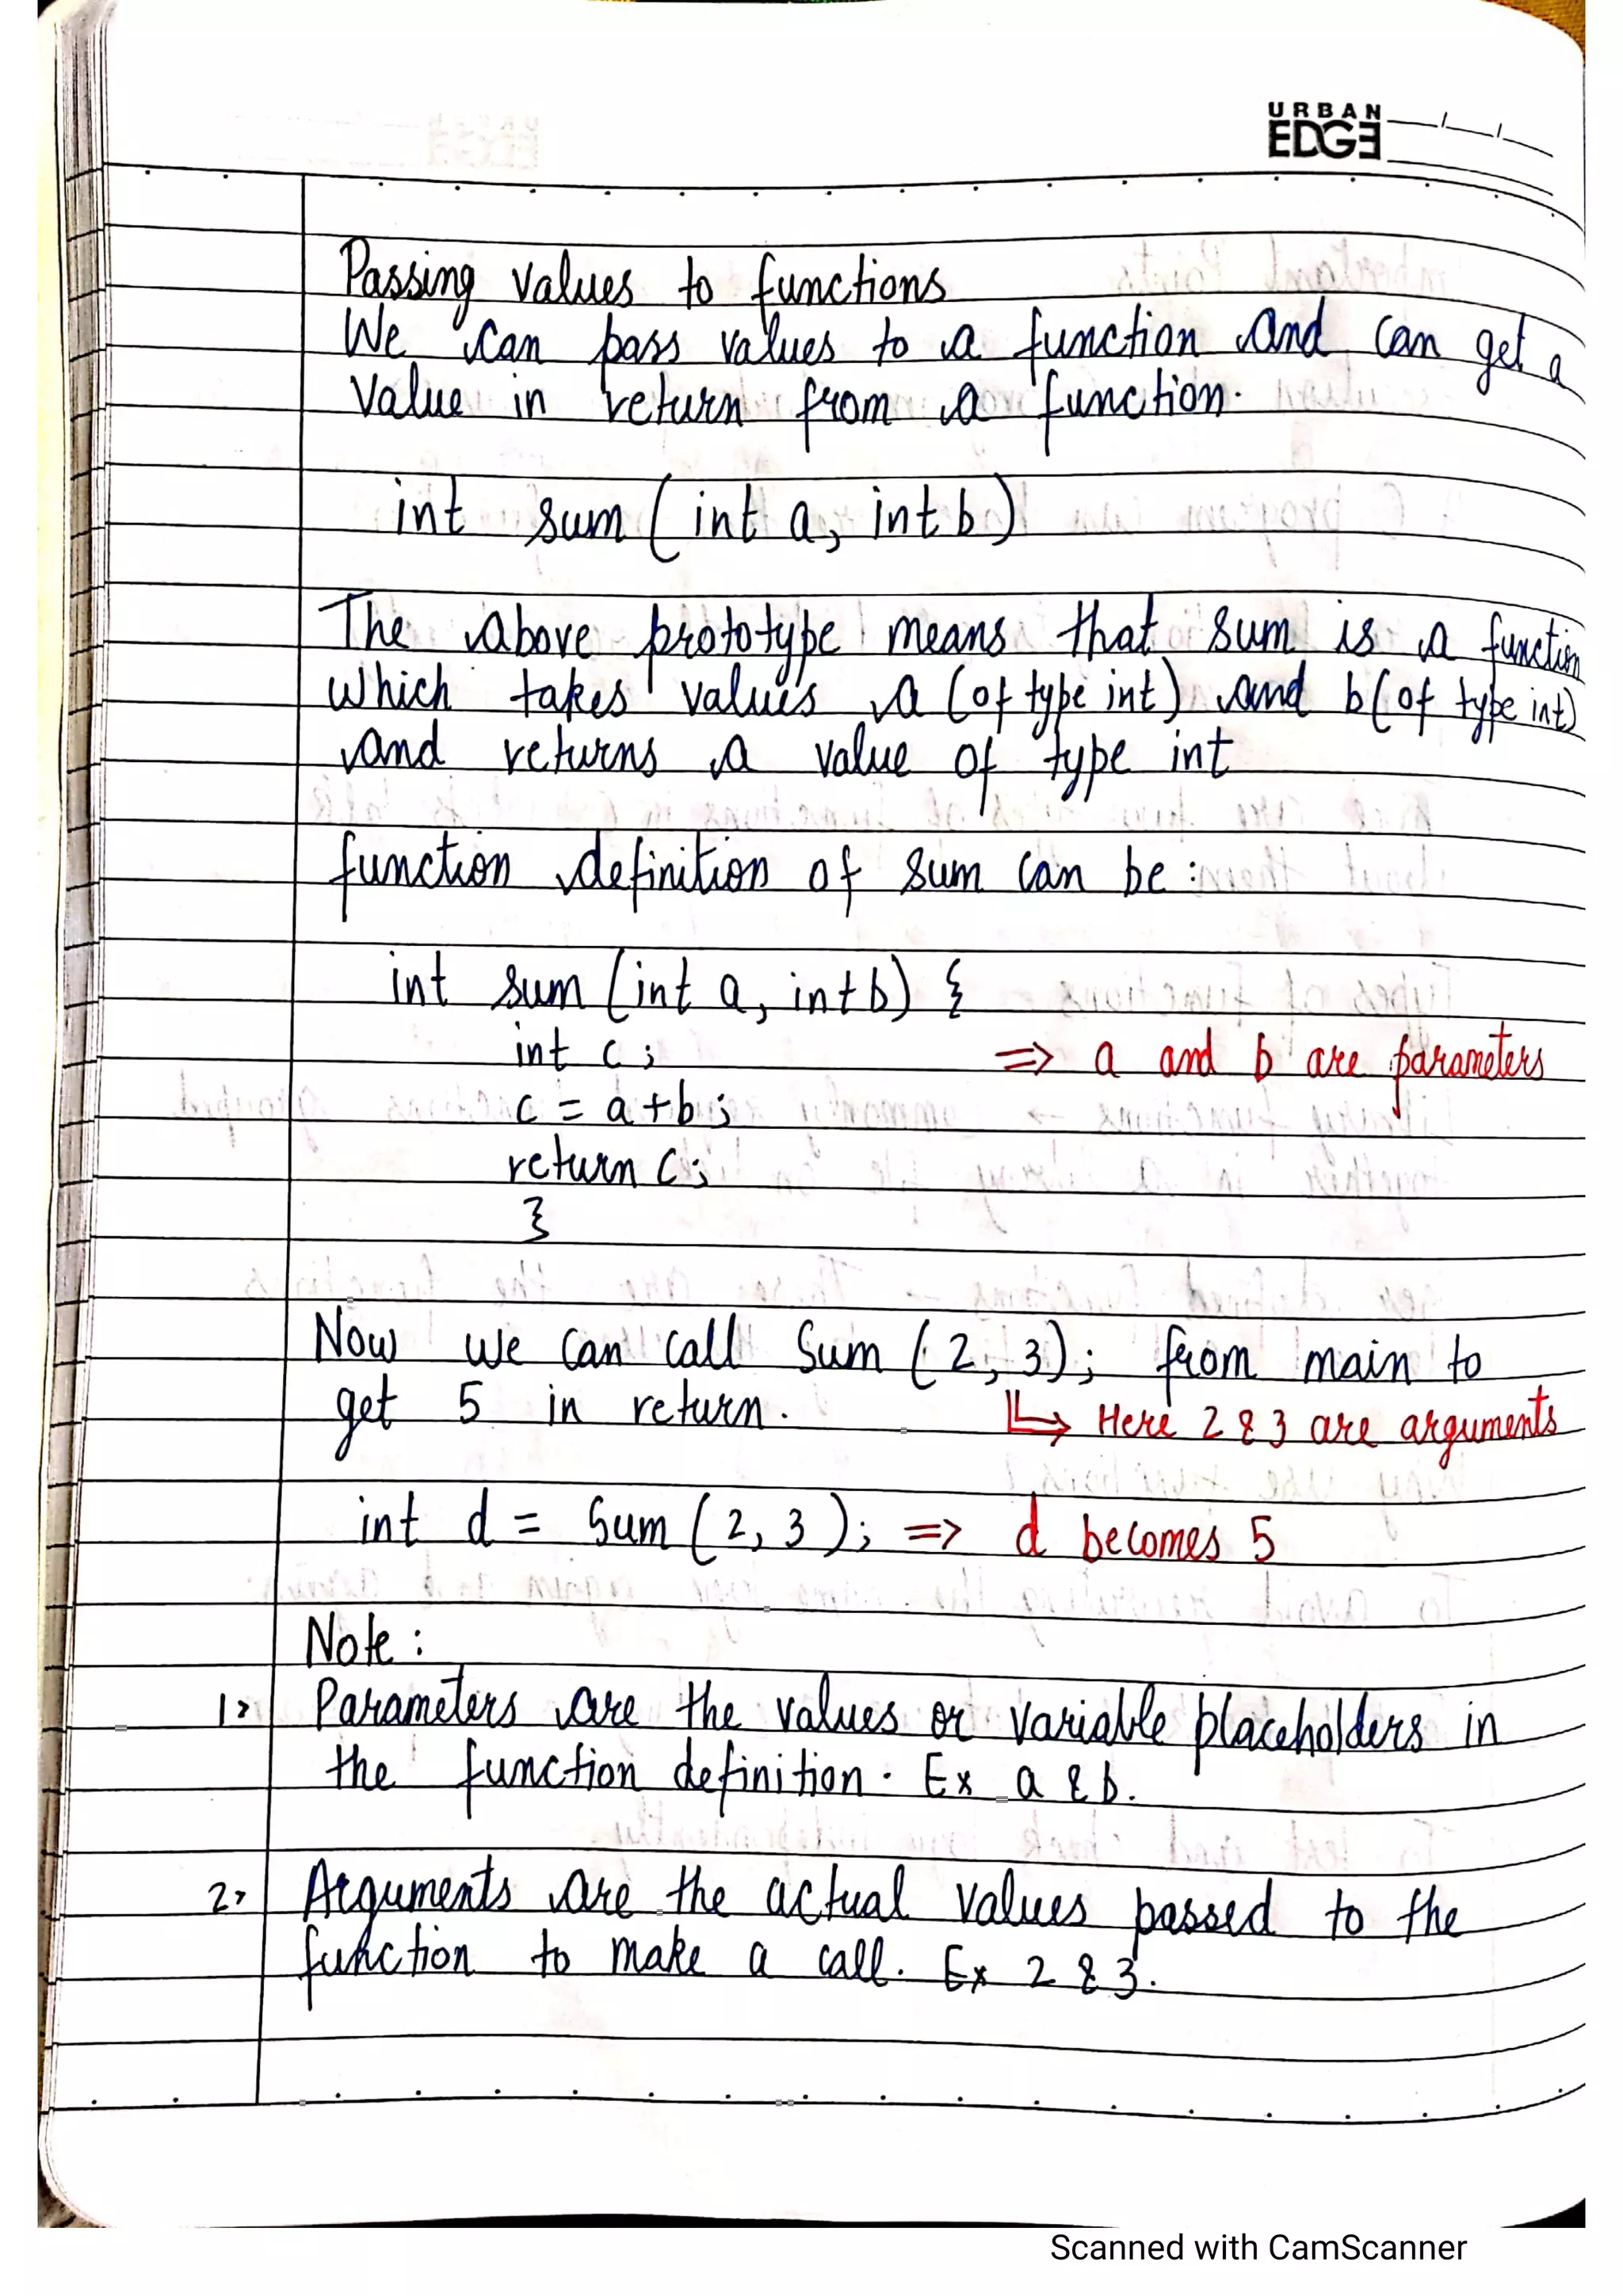 URBAN
EDGE
Passing values to functions
We can pass values to a function and can get a
value in return from a function.
int sum (int a, int b)
The above prototype means that sum is a function
which takes values a (of type int) and b (of type int)
and returns a value of type int
function definition of sum can be :
int sum (int a, int b) {
int c ;
=> a and b are parameters
c = a + b ;
return c ;
}
Now we can call Sum (2, 3); from main to
get 5 in return.
↳ Here 2 & 3 are arguments
int d = Sum (2, 3); => d becomes 5
Note :
1> Parameters are the values or variable placeholders in
the function definition. Ex a & b.
2> Arguments are the actual values passed to the
function to make a call. Ex 2 & 3.
Scanned with CamScanner